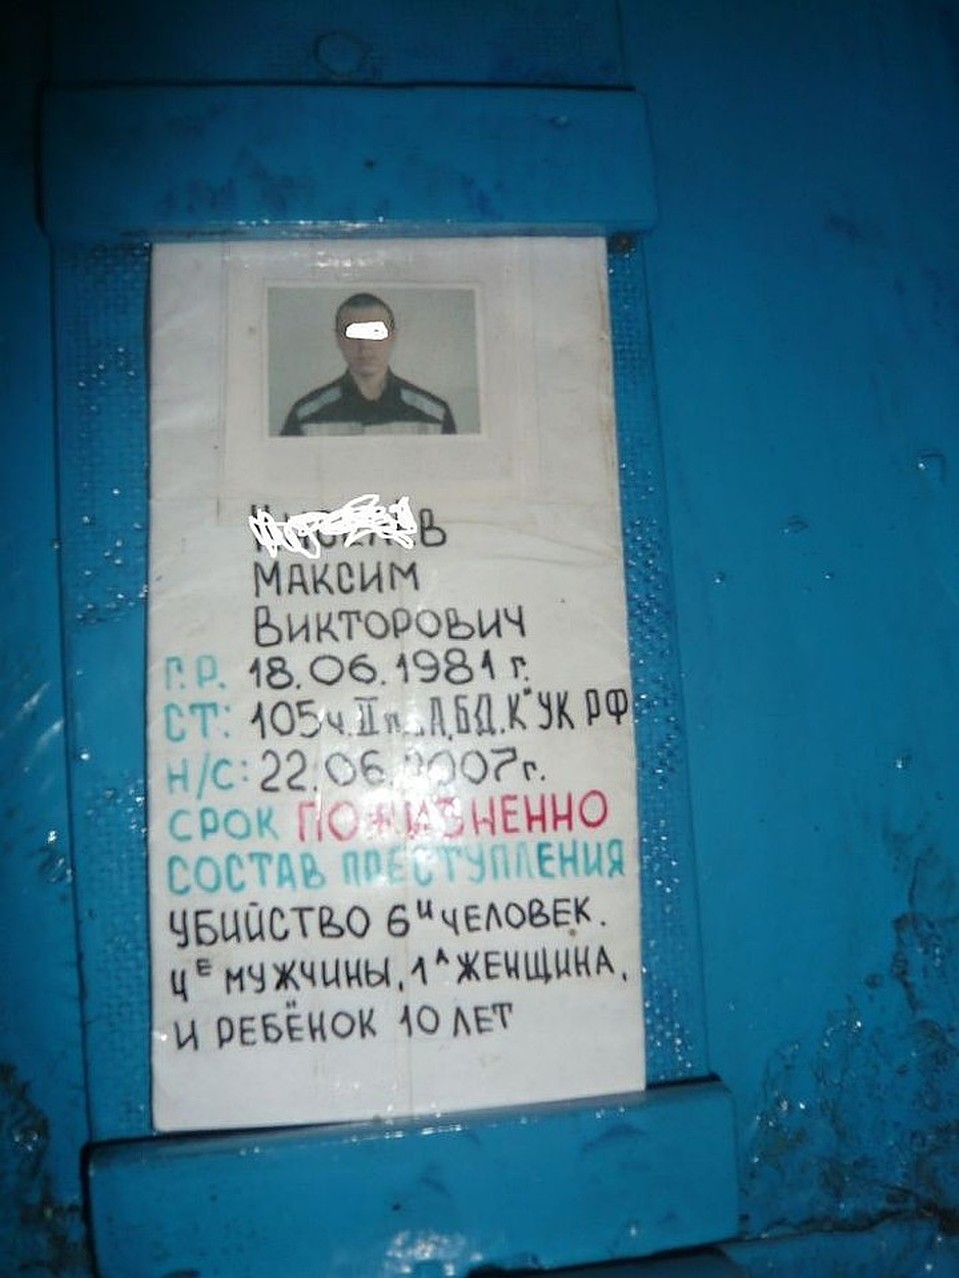 МАКСИМ
ВИКТОРОВИЧ
Г.Р. 18.06.1981 г.
СТ: 105 ч. II п. "А,Б,Д.К" УК РФ
Н/С: 22.06.2007 г.
СРОК ПОЖИЗНЕННО
СОСТАВ ПРЕСТУПЛЕНИЯ
УБИЙСТВО 6И ЧЕЛОВЕК.
4Е МУЖЧИНЫ, 1А ЖЕНЩИНА,
И РЕБЁНОК 10 ЛЕТ